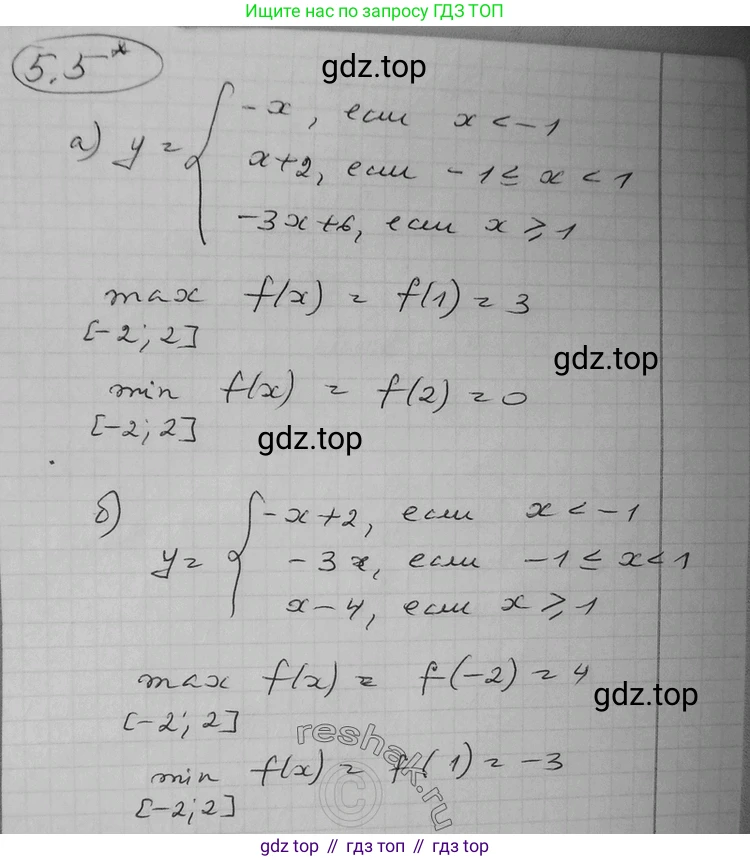 Ищите нас по запросу ГДЗ ТОП
5.5*
gdz.top
а) y = { -x, если x < -1
x+2, если -1 ≤ x < 1
-3x+6, если x ≥ 1
max f(x) = f(1) = 3
[-2; 2]
gdz.top
min f(x) = f(2) = 0
[-2; 2]
gdz.top
б) y = { -x+2, если x < -1
-3x, если -1 ≤ x < 1
x-4, если x ≥ 1
max f(x) = f(-2) = 4
[-2; 2]
gdz.top
reshak.ru
©
min f(x) = f(1) = -3
[-2; 2]
gdz top // гдз топ // gdz top